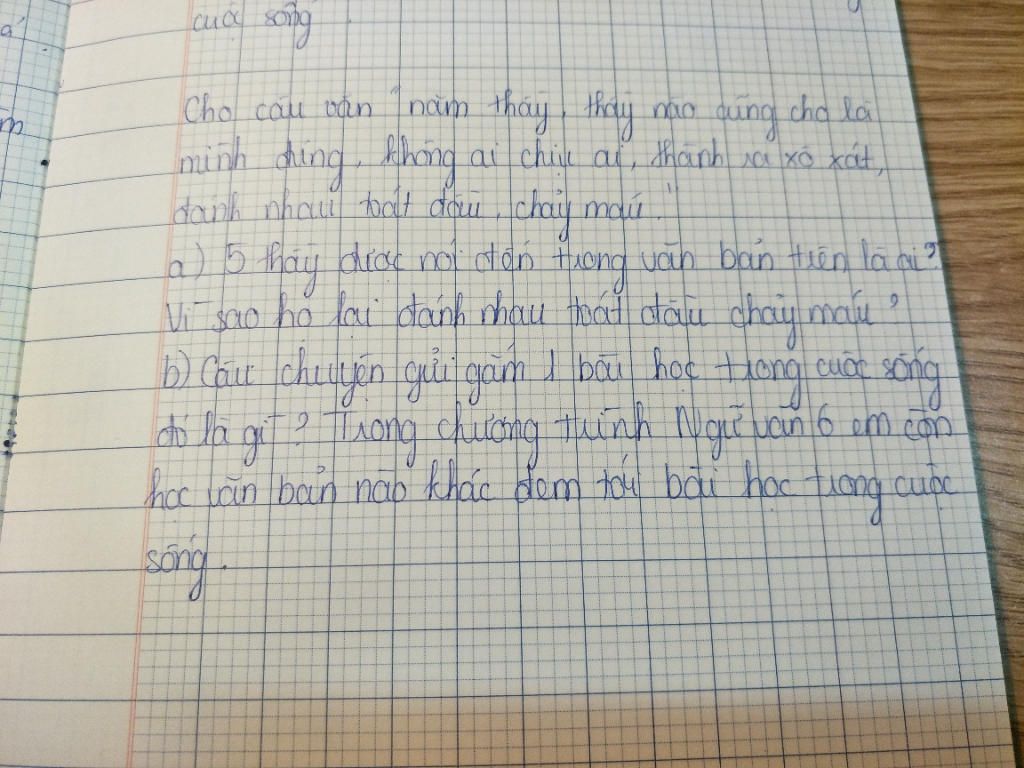 cuộc sống
á
m
Cho câu văn "năm thầy, thầy nào cũng cho là
mình đúng, không ai chịu ai, thành ra xô xát,
đánh nhau toát đầu, chảy máu."
a) 5 thầy được nói đến trong văn bản trên là ai?
Vì sao họ lại đánh nhau toát đầu chảy máu?
b) Câu chuyện gửi gắm 1 bài học trong cuộc sống
đó là gì? Trong chương trình Ngữ văn 6 em còn
học văn bản nào khác đem tới bài học trong cuộc
sống.